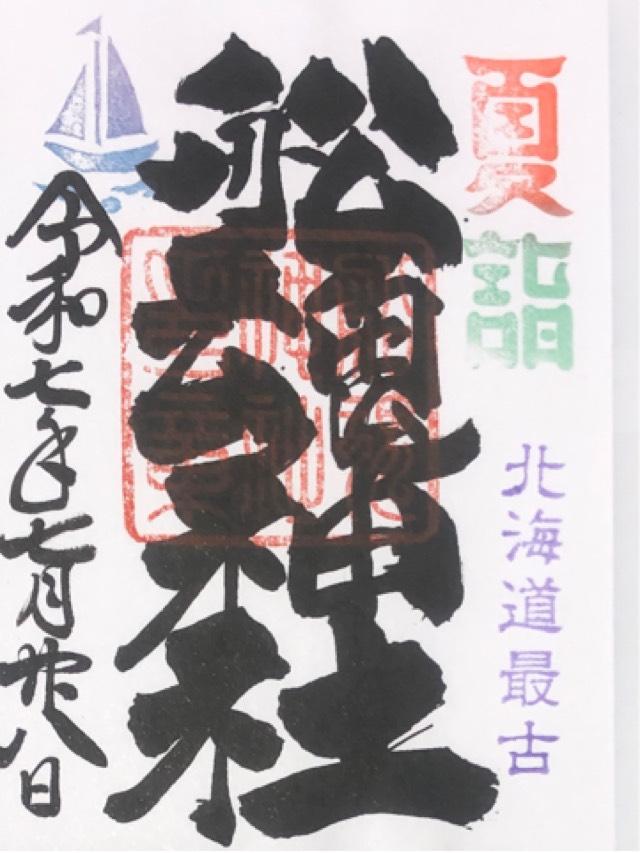 夏詣
北海道最古
舩魂神社
令和七年七月廿八日